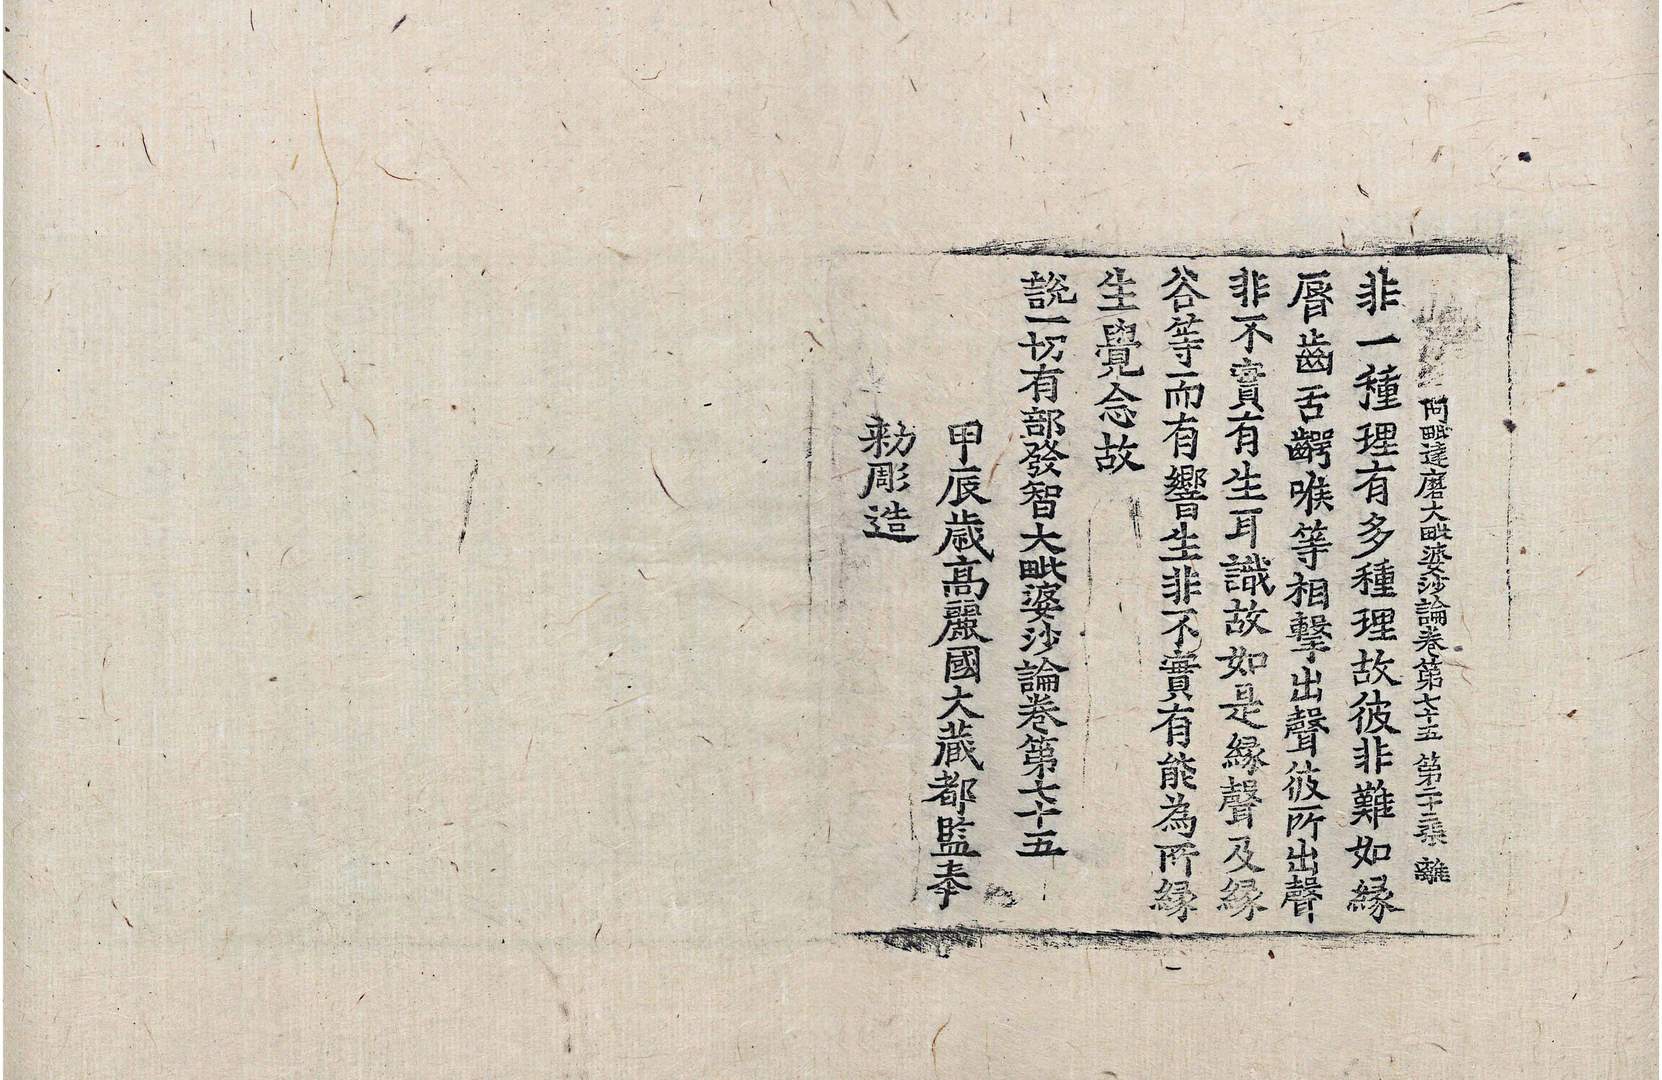 阿毗達磨大毗婆沙論卷第七十五 第二十三張 離
非一種理有多種理故彼非難如緣
脣齒舌齶喉等相擊出聲彼所出聲
非不實有生耳識故如是緣聲及緣
谷等而有響生非不實有能為所緣
生覺念故
說一切有部發智大毗婆沙論卷第七十五
甲辰歲高麗國大藏都監奉
勅彫造